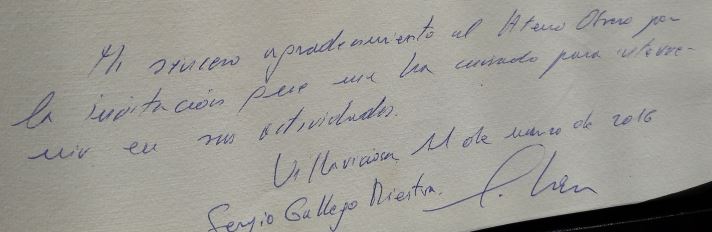 Mi sincero agradecimiento al Ateneo Obrero por
la invitación que me ha cursado para interve-
nir en sus actividades.
Villaviciosa 11 de marzo de 2016
Sergio Gallego Riestra.